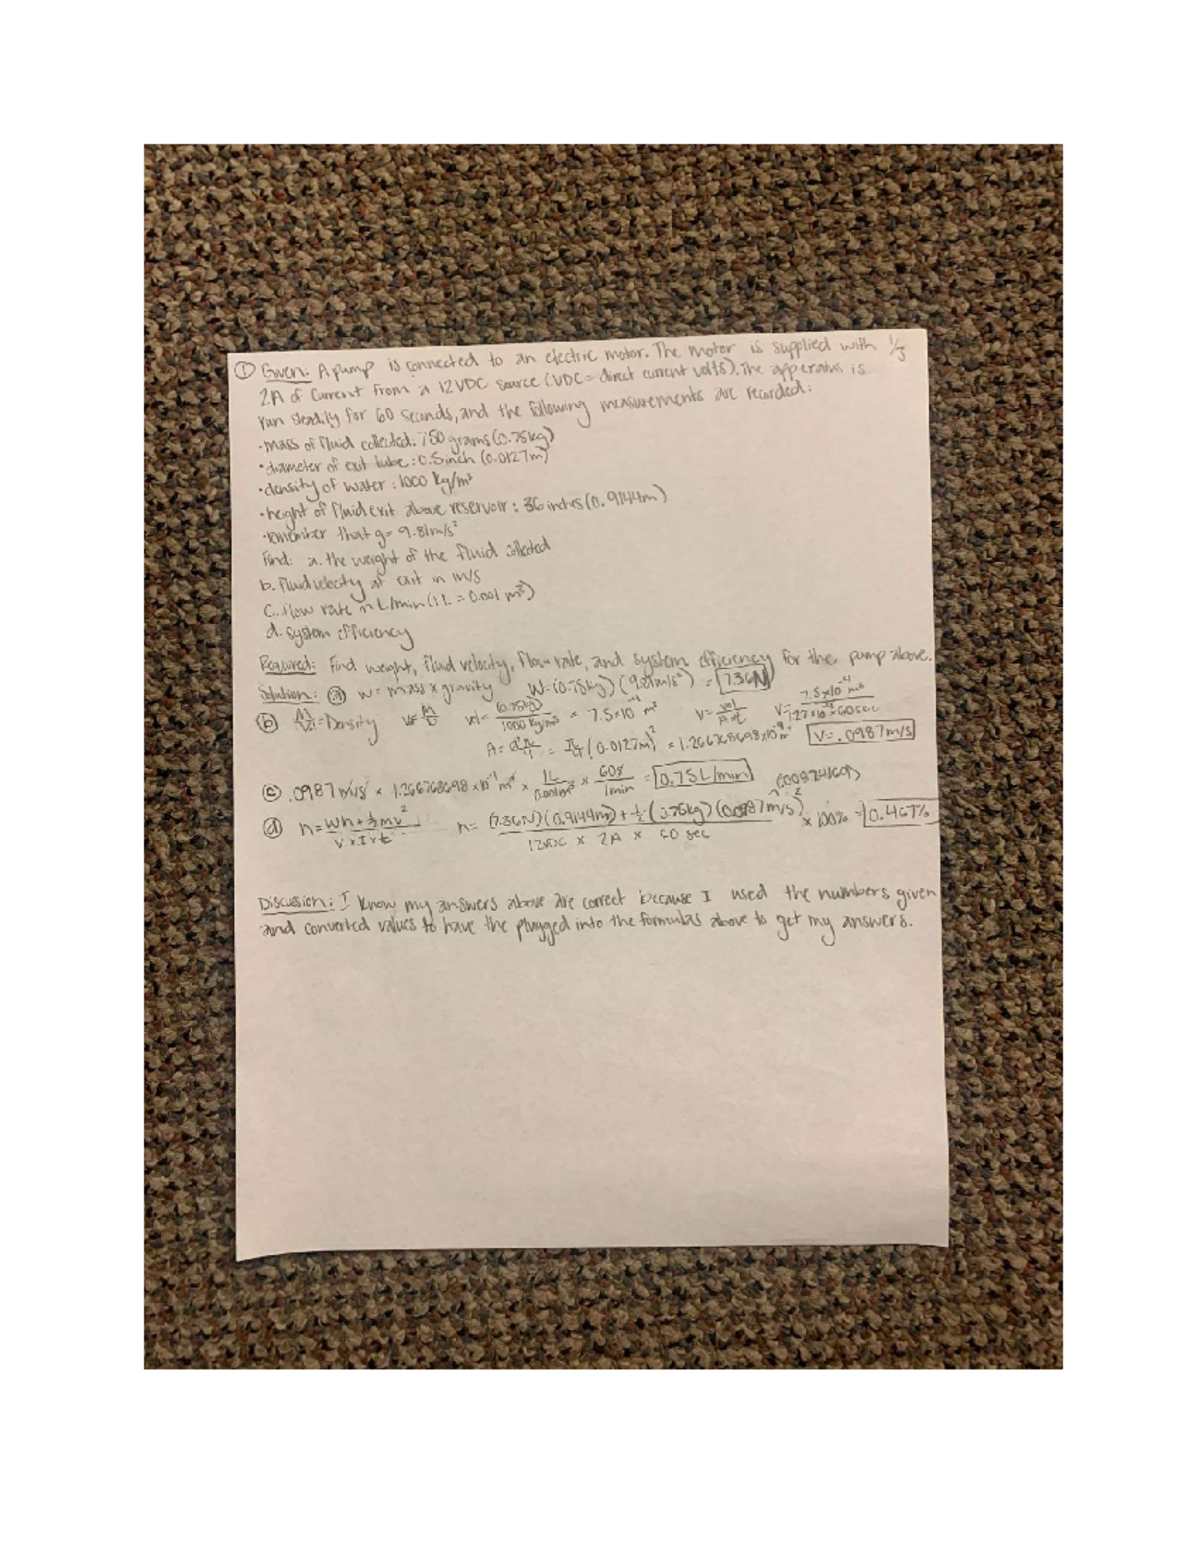 ① Given: A pump is connected to an electric motor. The motor is supplied with 1/3
2A of current from a 12VDC source (VDC = direct current volts). The apperatus is
run steadily for 60 seconds, and the following measurements are recorded:
·mass of fluid collected: 750 grams (0.75kg)
·diameter of exit tube: 0.5 inch (0.0127m)
·density of water: 1000 kg/m³
·height of fluid exit above reservoir: 36 inches (0.9144m)
·remember that g= 9.81m/s²
Find: a. the weight of the fluid collected
b. fluid velocity at exit in m/s
c. flow rate in L/min (1L = 0.001 m³)
d. system efficiency
Required: Find weight, fluid velocity, flow rate, and system efficiency for the pump above.
Solution: ⓐ w= mass x gravity W=(0.75kg)(9.81m/s²) = 7.36N
ⓑ M/vol = Density vol= M/D vol= 0.75kg/1000 kg/m³ = 7.5x10⁻⁴ m³ V= vol/Axt V= 7.5x10⁻⁴ m³/1.27x10⁻⁴x60sec
A= d²π/4 = π/4 (0.0127m)² = 1.266768698x10⁻⁴m² V= .0987m/s
ⓒ .0987 m/s x 1.266768698 x10⁻⁴ m² x 1L/0.001m³ x 60s/1min = 0.75L/min
ⓓ n= wh+½mv²/VxIxt n= (7.36N)(0.9144m)+½(0.75kg)(0.0987m/s)²/12VDC x 2A x 60 sec x 100% = 0.467%
Discussion: I know my answers above are correct because I used the numbers given
and converted values to have the plugged into the formulas above to get my answers.